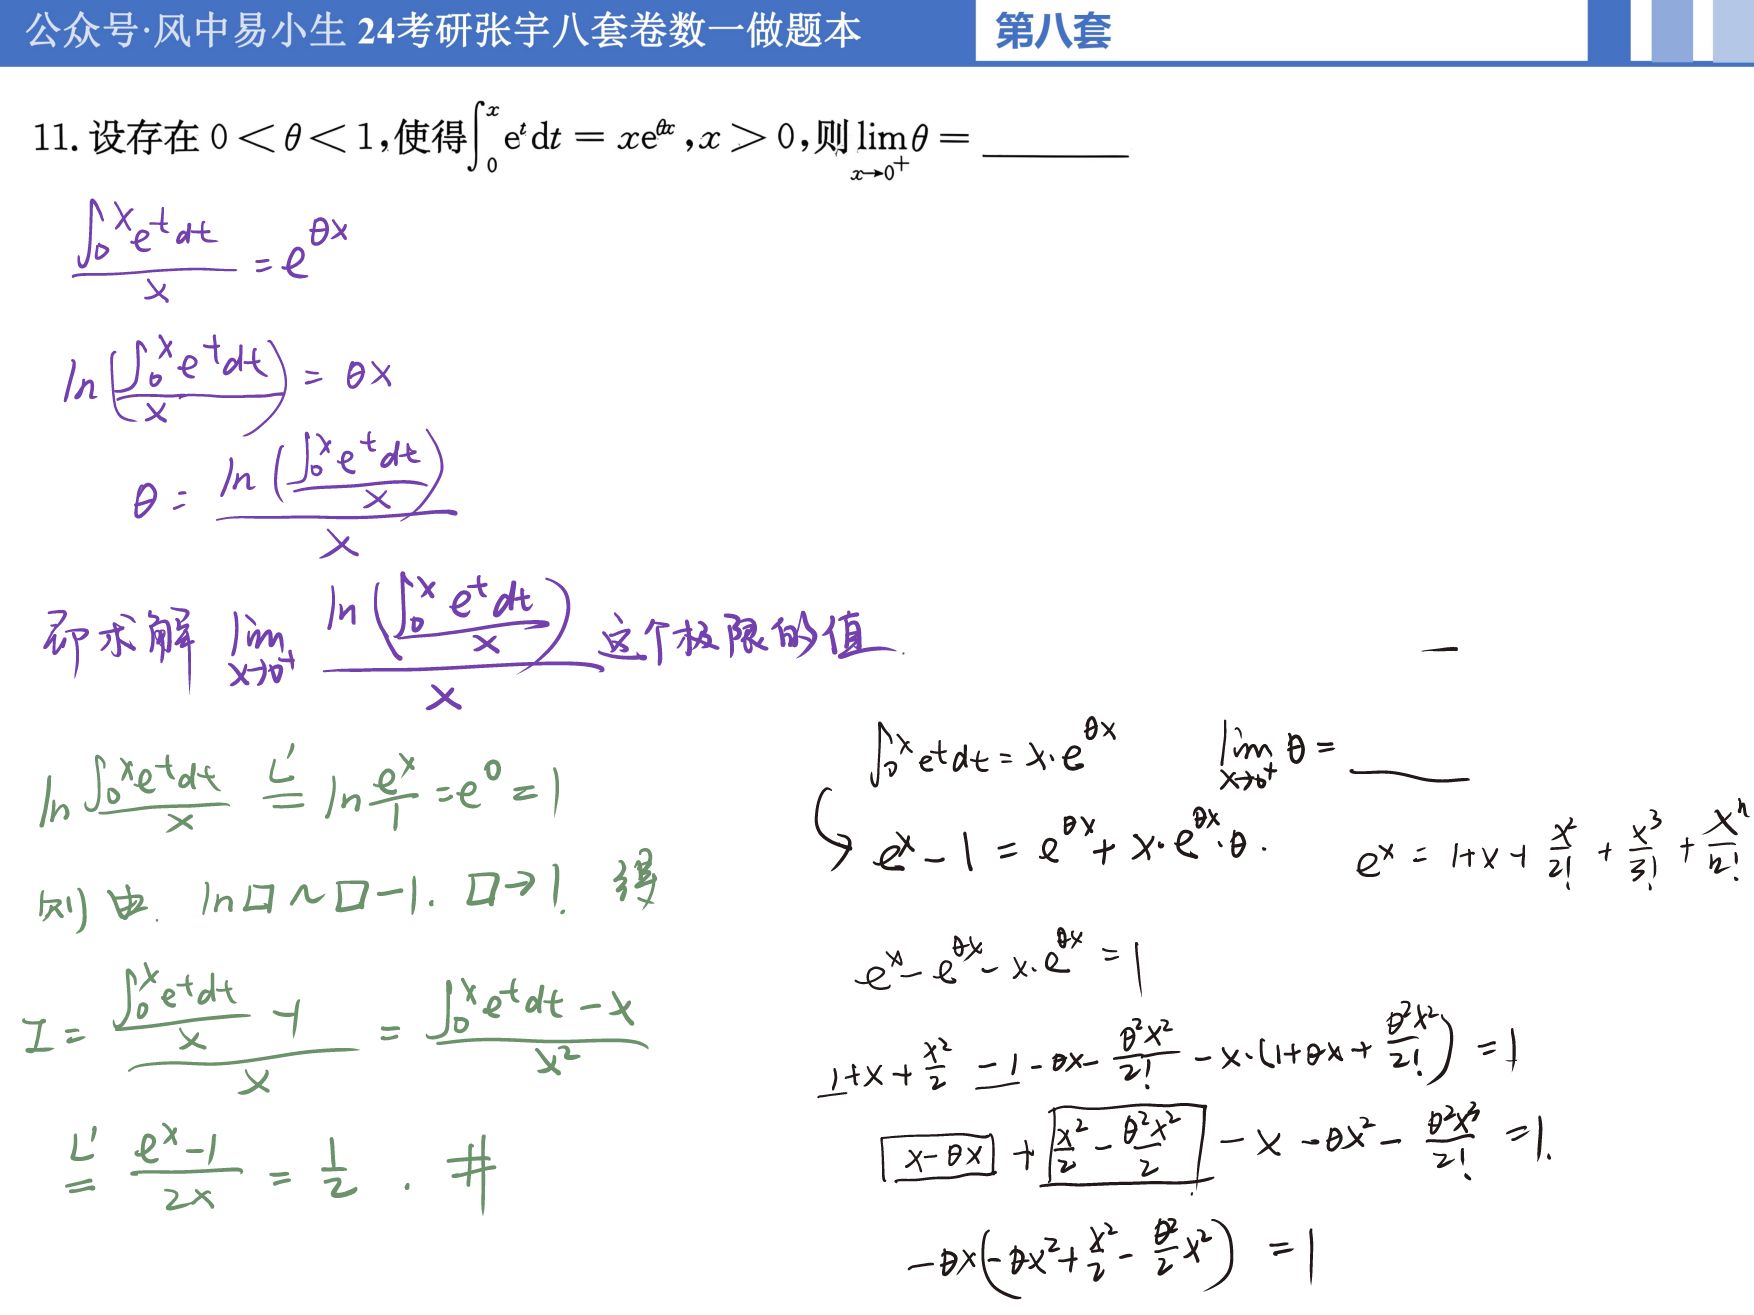 公众号·风中易小生 24考研张宇八套卷数一做题本
第八套
11. 设存在 0 < θ < 1,使得∫₀ˣ eᵗdt = xe^{θx}, x > 0,则 lim_{x→0⁺} θ = ______
∫₀ˣ eᵗdt / x = e^{θx}
ln(∫₀ˣ eᵗdt / x) = θx
θ = ln(∫₀ˣ eᵗdt / x) / x
即求解 lim_{x→0⁺} ln(∫₀ˣ eᵗdt / x) / x 这个极限的值.
ln ∫₀ˣ eᵗdt / x =(L') ln eˣ/1 = e⁰ = 1
则由. ln□ ~ □-1. □→1. 得
I = (∫₀ˣ eᵗdt / x - 1) / x = (∫₀ˣ eᵗdt - x) / x²
=(L') (eˣ-1) / 2x = 1/2 . #
∫₀ˣ eᵗdt = x·e^{θx} lim_{x→0⁺} θ = ____
eˣ - 1 = e^{θx} + x·e^{θx}·θ. eˣ = 1+x+ x²/2! + x³/3! + xⁿ/n!
eˣ - e^{θx} - x·e^{θx} = 1
1+x+ x²/2 -1 -θx- θ²x²/2! - x·(1+θx+ θ²x²/2!) = 1
x-θx + x²/2 - θ²x²/2 - x - θx² - θ²x³/2! = 1.
-θx(-θx²+ x²/2 - θ²/2 x²) = 1